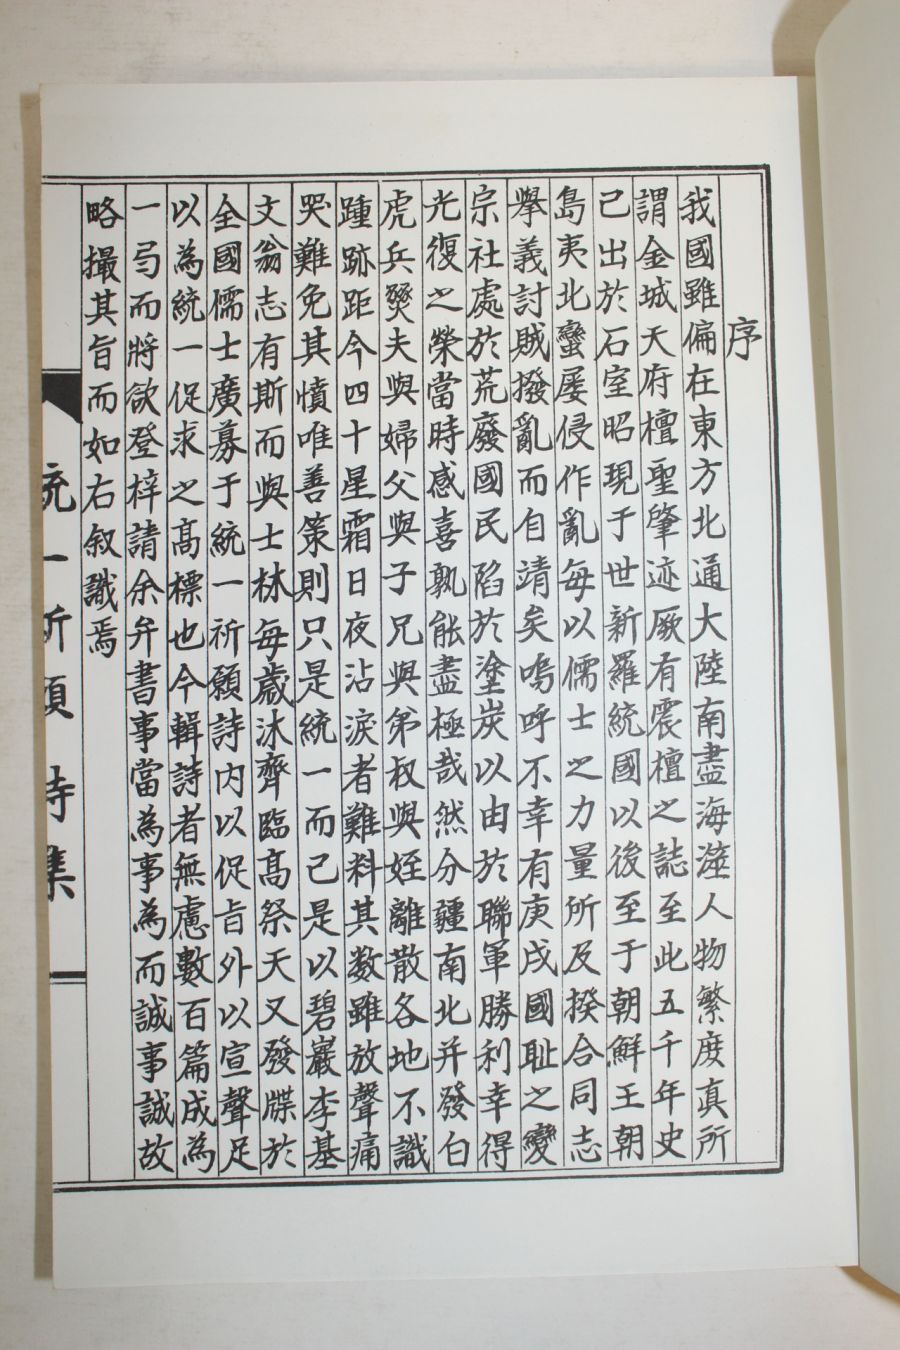 序
我國雖偏在東方北通大陸南盡海滋人物繁庶真所
謂金城天府檀聖肇迹厥有震檀之誌至此五千年史
已出於石室昭現于世新羅統國以後至于朝鮮王朝
島夷北蠻屡侵作亂每以儒士之力量所及揆合同志
擧義討賊撥亂而自靖矣嗚呼不幸有庚戌國耻之變
宗社處於荒廢國民陷於塗炭以由於聯軍勝利幸得
光復之榮當時感喜孰能盡極哉然分疆南北并發白
虎兵燹夫與婦父與子兄與弟叔與姪離散各地不識
踵跡距今四十星霜日夜沾淚者難料其数雖放聲痛
哭難免其憤唯善策則只是統一而已是以碧巖李基
文翁志有斯而與士林每歲沐齊臨髙祭天又發牒於
全國儒士廣募于統一祈願詩内以促旨外以宣聲足
以為統一促求之髙標也今輯詩者無慮數百篇成為
一弓而將欲登梓請余弁書事當為事為而誠事誠故
略撮其旨而如右叙識焉
統一祈願詩集